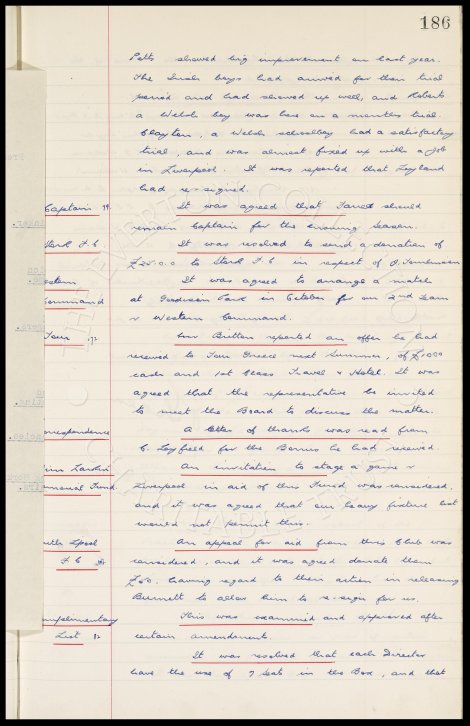 186
Potts showed big improvement on last year.
The Irish boys had arrived for their trial
period and had showed up well, and Roberts
a Welsh boy was here on a months trial.
Clayton, a Welsh schoolboy had a satisfactory
trial, and was almost fixed up with a job
in Liverpool. It was reported that Leyland
had re-signed.
Captain It was agreed that should
remain Captain for the ensuing season.
F.C. It was resolved to send a donation of
£25.0.0 to F.C in respect of
estern It was agreed to arrange a match
Command at Goodison Park in October for our 2nd Team
v Western Command.
Tour Mr Britton reported an offer he had
received to Tour Greece next Summer, of £1000
cash and 1st Class Travel & Hotel. It was
agreed that the representative be invited
to meet the Board to discuss the matter.
rrespondence A letter of thanks was read from
C. Leyfield for the Bonus he had received.
Larkin An invitation to stage a game v
Fund. Liverpool in aid of this Fund, was considered,
and it was agreed that our heavy fixture list
would not permit this.
uth Lpool An appeal for aid from this Club was
F.C considered, and it was agreed donate them
£50. having regard to their action in releasing
Burnett to allow him to re-sign for us.
mplimentary This was examined and approved after
List certain amendments.
It was resolved that each Director
have the use of 7 Seats in the Box, and that